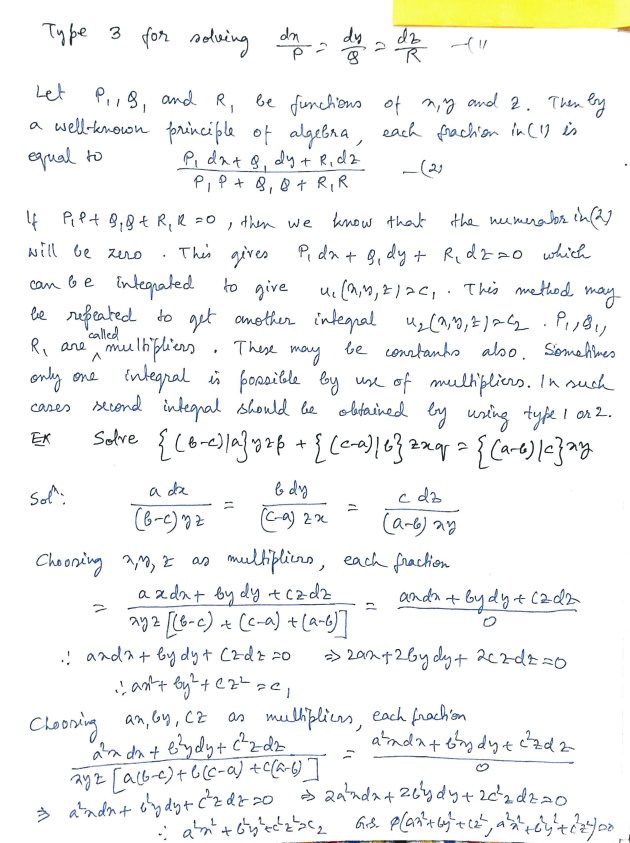 Type 3 for solving dx/P = dy/Q = dz/R —(1)
Let P₁, Q₁ and R₁ be functions of x, y and z. Then by
a well-known principle of algebra, each fraction in (1) is
equal to (P₁ dx + Q₁ dy + R₁ dz)/(P₁P + Q₁Q + R₁R) —(2)
If P₁P + Q₁Q + R₁R = 0, then we know that the numerator in (2)
will be zero. This gives P₁ dx + Q₁ dy + R₁ dz = 0 which
can be integrated to give u₁(x,y,z) = c₁. This method may
be repeated to get another integral u₂(x,y,z) = c₂. P₁, Q₁,
R₁ are called multipliers. These may be constants also. Sometimes
only one integral is possible by use of multipliers. In such
cases second integral should be obtained by using type 1 or 2.
Ex Solve {(b-c)/a}yzp + {(c-a)/b}zxq = {(a-b)/c}xy
Solⁿ: a dx/(b-c)yz = b dy/(c-a)zx = c dz/(a-b)xy
Choosing x, y, z as multipliers, each fraction
= (axdx + bydy + czdz)/(xyz[(b-c) + (c-a) + (a-b)]) = (axdx + bydy + czdz)/0
∴ axdx + bydy + czdz = 0 ⇒ 2ax+2bydy + 2czdz = 0
∴ ax² + by² + cz² = c₁
Choosing ax, by, cz as multipliers, each fraction
(a²xdx + b²ydy + c²zdz)/(xyz[a(b-c) + b(c-a) + c(a-b)]) = (a²xdx + b²ydy + c²zdz)/0
⇒ a²xdx + b²ydy + c²zdz = 0 ⇒ 2a²xdx + 2b²ydy + 2c²zdz = 0
∴ a²x² + b²y² + c²z² = c₂ G.S. φ(ax²+by²+cz², a²x²+b²y²+c²z²) = 0